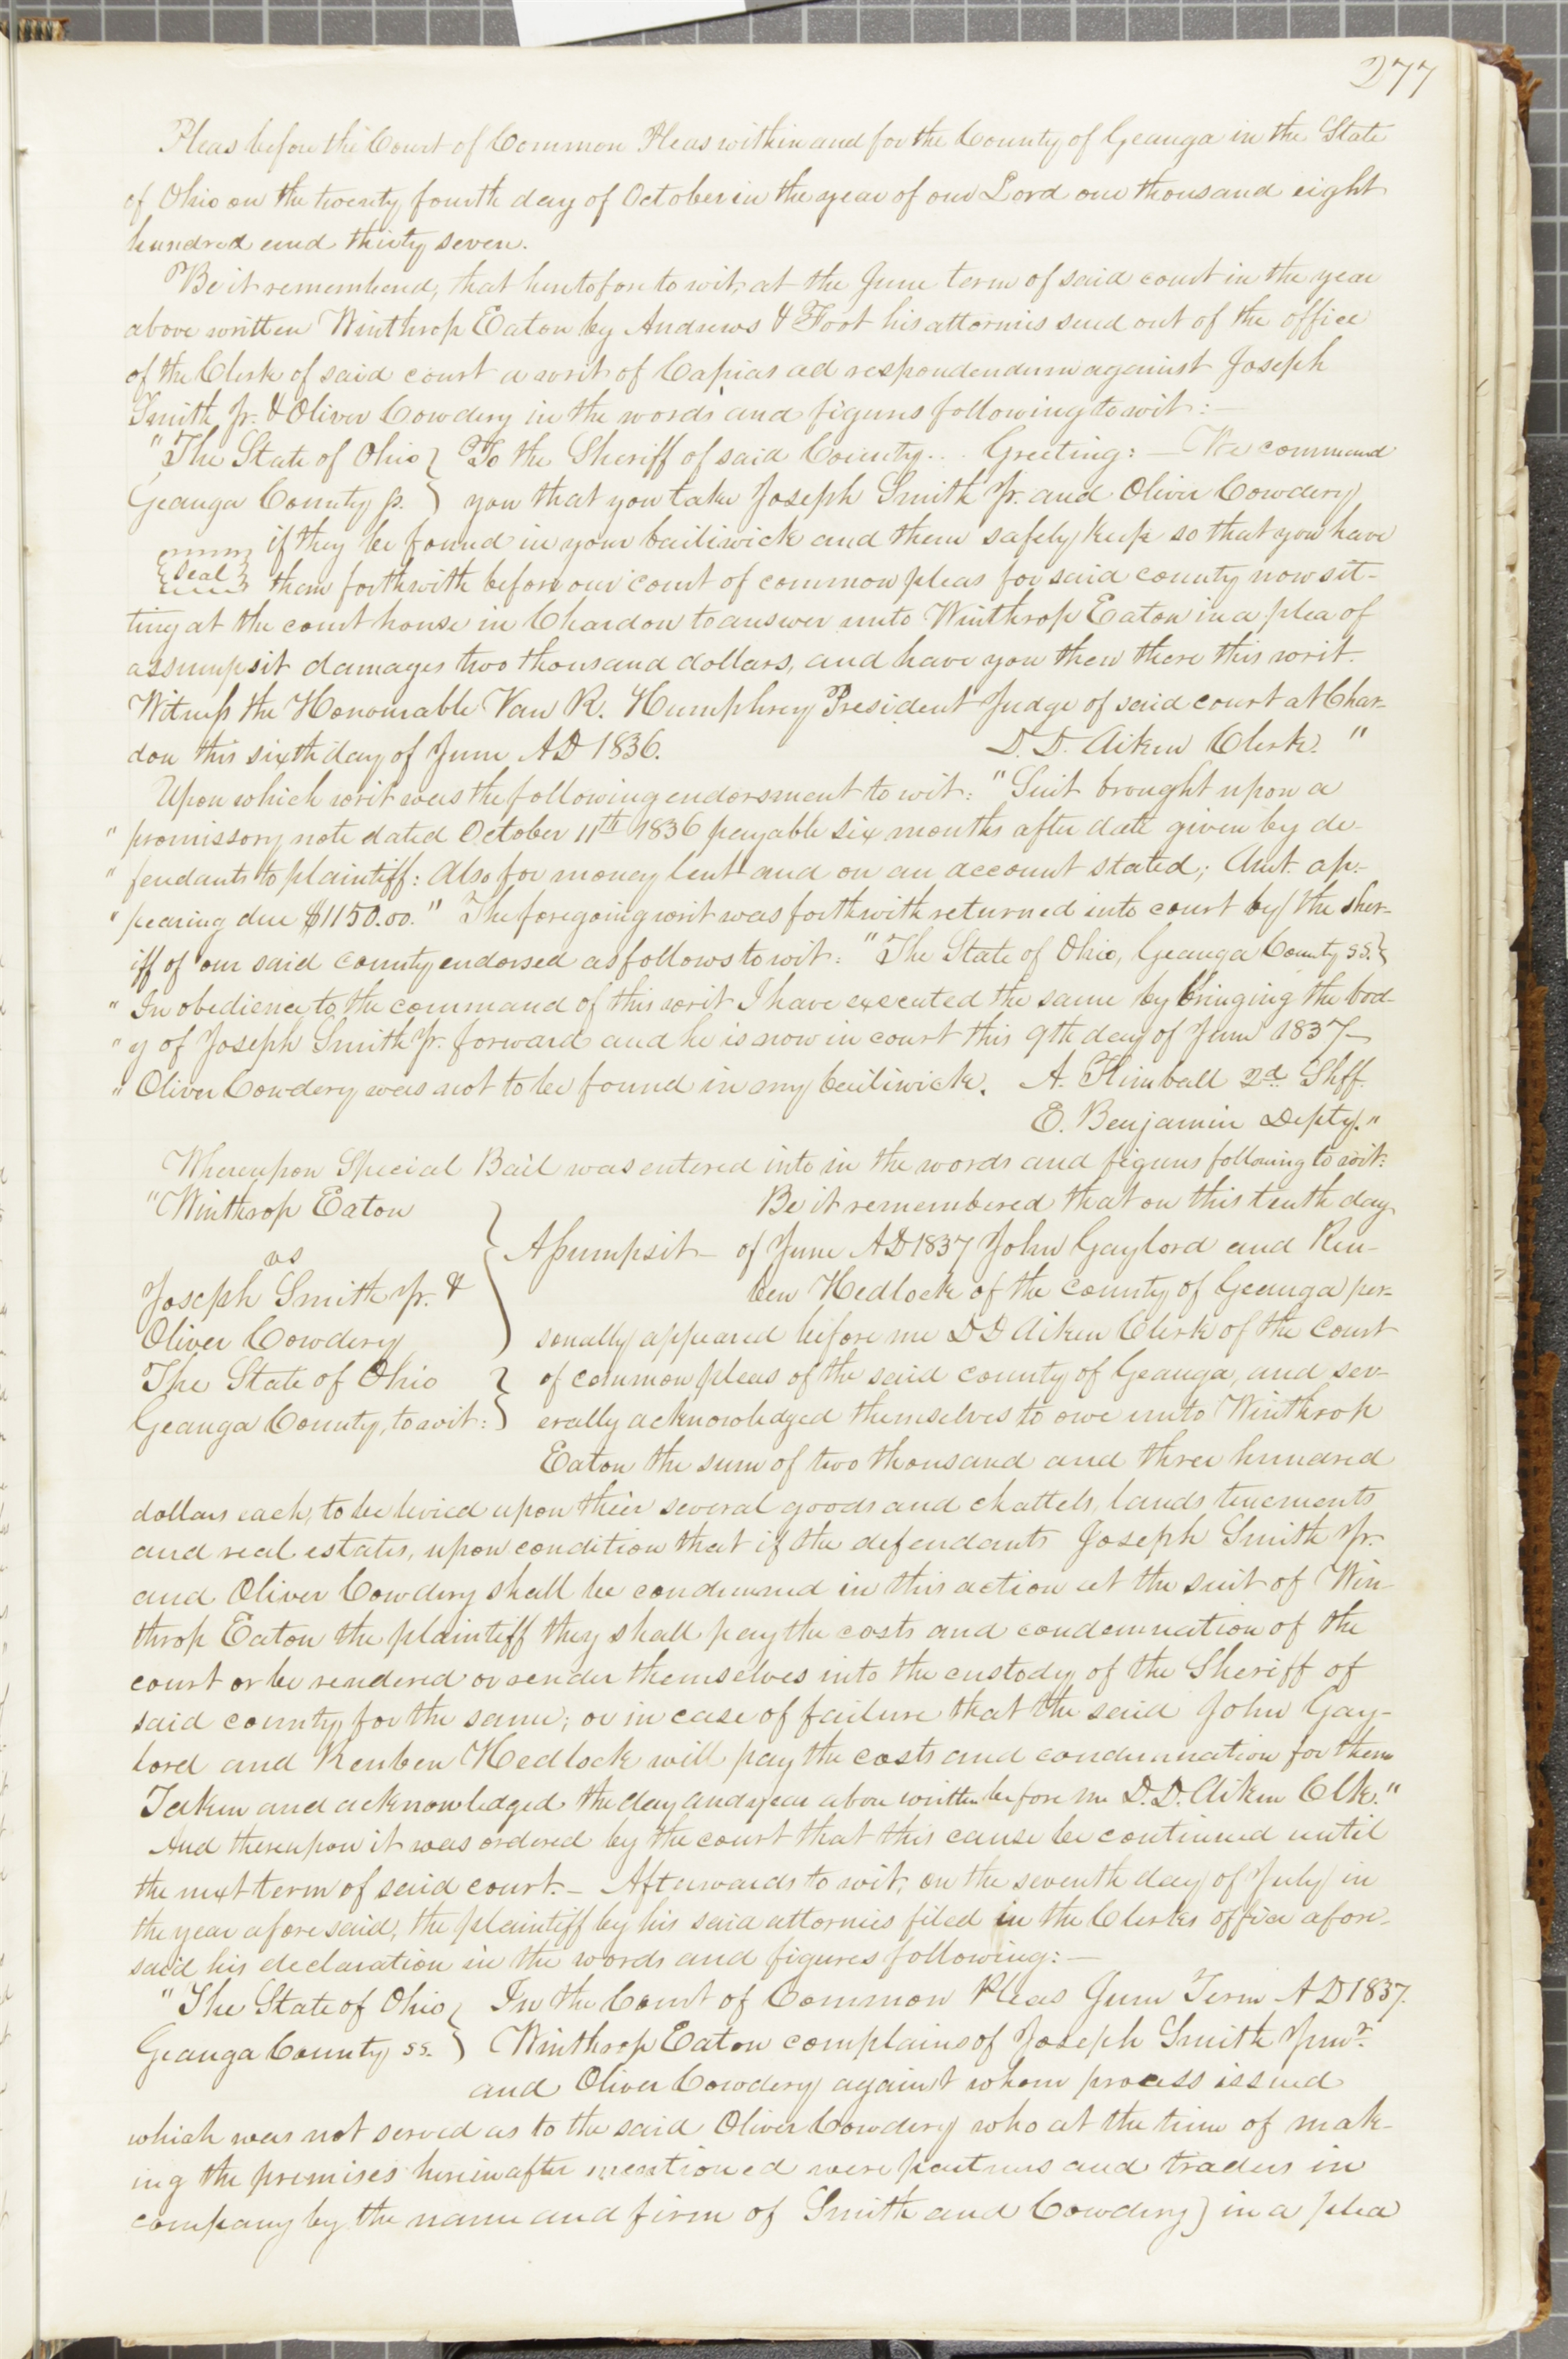 277
Pleas before the Court of Common Pleas within and for the County of Geauga in the State
of Ohio on the twenty fourth day of October in the year of our Lord one thousand eight
hundred and thirty seven.
Be it remembered, that heretofore to wit, at the June term of said court in the year
above written Winthrop Eaton by Andrews & Foot his attornies sued out of the office
of the Clerk of said court a writ of Capias ad respondendum against Joseph
Smith Jr. & Oliver Cowdery in the words and figures following to wit:—
"The State of Ohio } To the Sheriff of said County... Greeting:— We command
Geauga County ss. } you that you take Joseph Smith Jr. and Oliver Cowdery
if they be found in your bailiwick and them safely keep so that you have
{seal} them forthwith before our court of common pleas for said county now sit-
ting at the court house in Chardon to answer unto Winthrop Eaton in a plea of
assumpsit damages two thousand dollars, and have you then there this writ.
Witness the Honourable Van R. Humphrey President Judge of said court at Char-
don this sixth day of June AD 1836. D. D. Aiken Clerk."
Upon which writ was the following endorsment to wit: "Suit brought upon a
" promissory note dated October 11th 1836 payable six months after date given by de-
" fendants to plaintiff: Also for money lent and on an account stated; Amt. ap-
" pearing due $1150.00." The foregoing writ was forthwith returned into court by the sher-
iff of our said county endorsed as follows to wit: "The State of Ohio, Geauga County ss.}
" In obedience to the command of this writ I have executed the same by bringing the bod-
" y of Joseph Smith Jr. forward and he is now in court this 9th day of June 1837—
" Oliver Cowdery was not to be found in my bailiwick. A. Kimball 2d. Shff.
E. Benjamin Depty."
Whereupon Special Bail was entered into in the words and figures following to wit:
"Winthrop Eaton Be it remembered that on this tenth day
vs } Assumpsit— of June AD 1837 John Gaylord and Reu-
Joseph Smith Jr. & ben Hedlock of the county of Geauga per-
Oliver Cowdery sonally appeared before me D D Aiken Clerk of the court
The State of Ohio } of common pleas of the said county of Geauga, and sev-
Geauga County, to wit: } erally acknowledged themselves to owe unto Winthrop
Eaton the sum of two thousand and three hundred
dollars each, to be levied upon their several goods and chattels, lands tenements
and real estates, upon condition that if the defendants Joseph Smith Jr.
and Oliver Cowdery shall be condemned in this action at the suit of Win-
throp Eaton the plaintiff they shall pay the costs and condemnation of the
court or be rendered or render themselves into the custody of the Sheriff of
said county for the same; or in case of failure that the said John Gay-
lord and Reuben Hedlock will pay the costs and condemnation for them
Taken and acknowledged the day and year above written before me D. D. Aiken Clk."
And thereupon it was ordered by the court that this cause be continued until
the next term of said court.— Afterwards to wit, on the seventh day of July in
the year aforesaid, the plaintiff by his said attornies filed in the Clerks office afore-
said his declaration in the words and figures following:—
"The State of Ohio } In the Court of Common Pleas June Term AD 1837.
Geauga County ss. } Winthrop Eaton complains of Joseph Smith Junr.
and Oliver Cowdery against whom process issued
which was not served as to the said Oliver Cowdery who at the time of mak-
ing the premises hereinafter mentioned were partners and traders in
company by the name and firm of Smith and Cowdery) in a plea